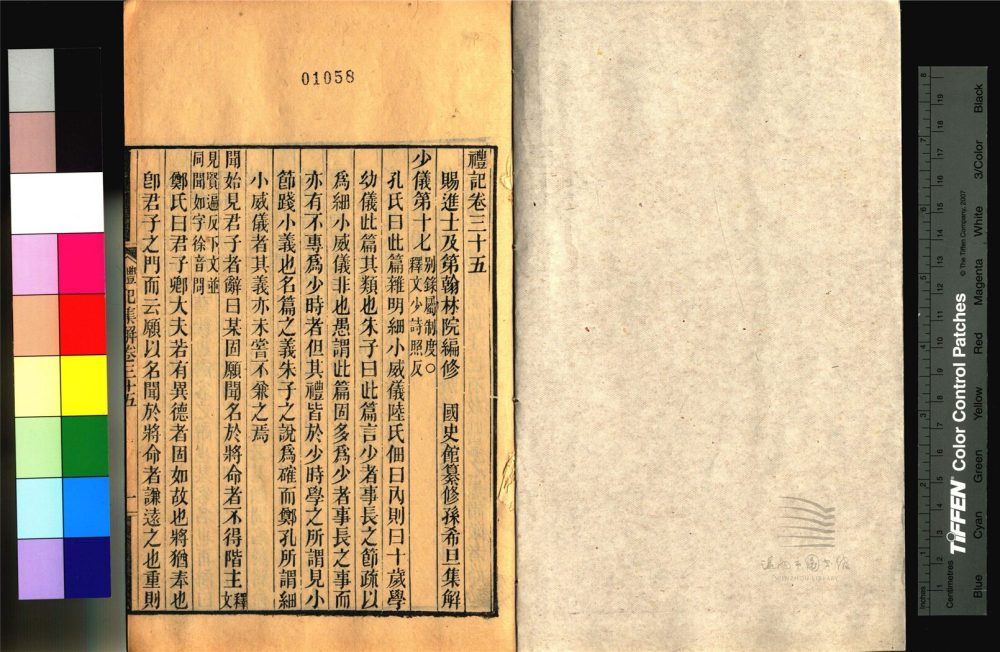 01058
禮記卷三十五
賜進士及第翰林院編修 國史館纂修孫希旦集解
少儀第十七 別錄屬制度○釋文少詩照反
孔氏曰此篇雜明細小威儀陸氏佃曰內則曰十歲學
幼儀此篇其類也朱子曰此篇言少者事長之節疏以
爲細小威儀非也愚謂此篇固多爲少者事長之事而
亦有不專爲少時者但其禮皆於少時學之所謂見小
節踐小義也名篇之義朱子之說爲確而鄭孔所謂細
小威儀者其義亦未嘗不兼之焉
聞始見君子者辭曰某固願聞名於將命者不得階主 釋文
見賢遍反下文並同聞如字徐音問
鄭氏曰君子卿大夫若有異德者固如故也將猶奉也
卽君子之門而云願以名聞於將命者謙遠之也重則
禮記集解卷三十五
一
溫州市圖書館
WENZHOU LIBRARY
Inches
Centimetres
TIFFEN Color Control Patches
© The Tiffen Company, 2007
Blue
Cyan
Green
Yellow
Red
Magenta
White
3/Color
Black